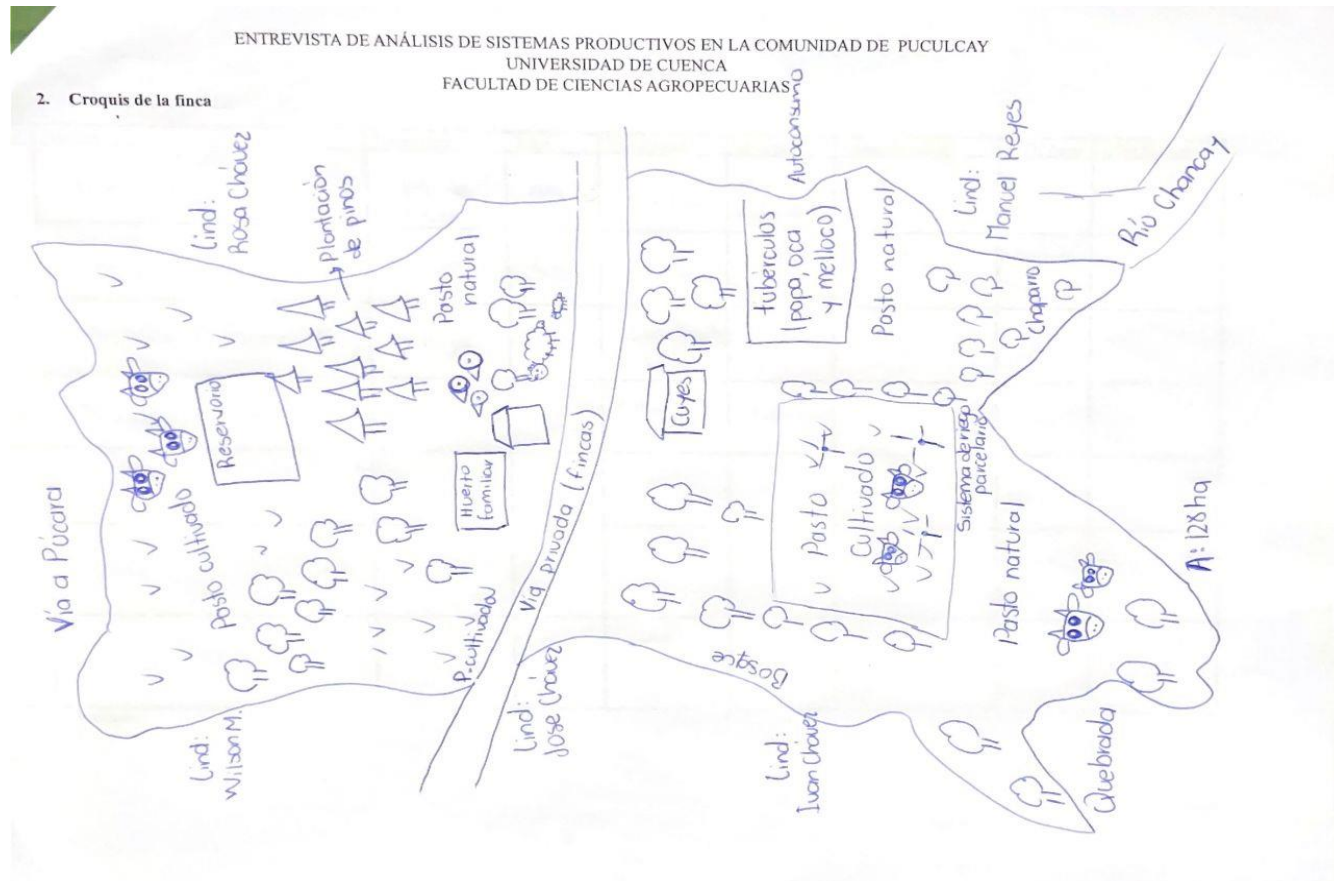 ENTREVISTA DE ANÁLISIS DE SISTEMAS PRODUCTIVOS EN LA COMUNIDAD DE PUCULCAY
UNIVERSIDAD DE CUENCA
FACULTAD DE CIENCIAS AGROPECUARIAS
2. Croquis de la finca
Vía a Púcara
Lind:
Rosa Chávez
Plantación
de pinos
Reservorio
Pasto cultivado
Pasto
natural
Huerto
familiar
P. cultivado
Lind:
Wilson M.
Vía privada (fincas)
Lind:
José Chávez
Cuyes
Autoconsumo
tubérculos
(papa, oca
y melloco)
Pasto natural
Lind:
Manuel Reyes
Río Chancay
Chaparro
Pasto
Cultivado
Sistema de riego
parcelario
Bosque
Lind:
Ivan Chávez
Pasto natural
Quebrada
A: 128 ha